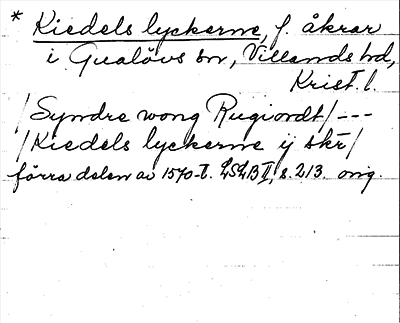 * Kiedels lyckerne, f. åkrar
i Gualövs sn, Villands hd,
Krist. l.
/Syndre wong Rugiordt/---
/Kiedels lyckerne ij skr̄/
förra delen av 1570-t. LSLB II, s. 213. orig.